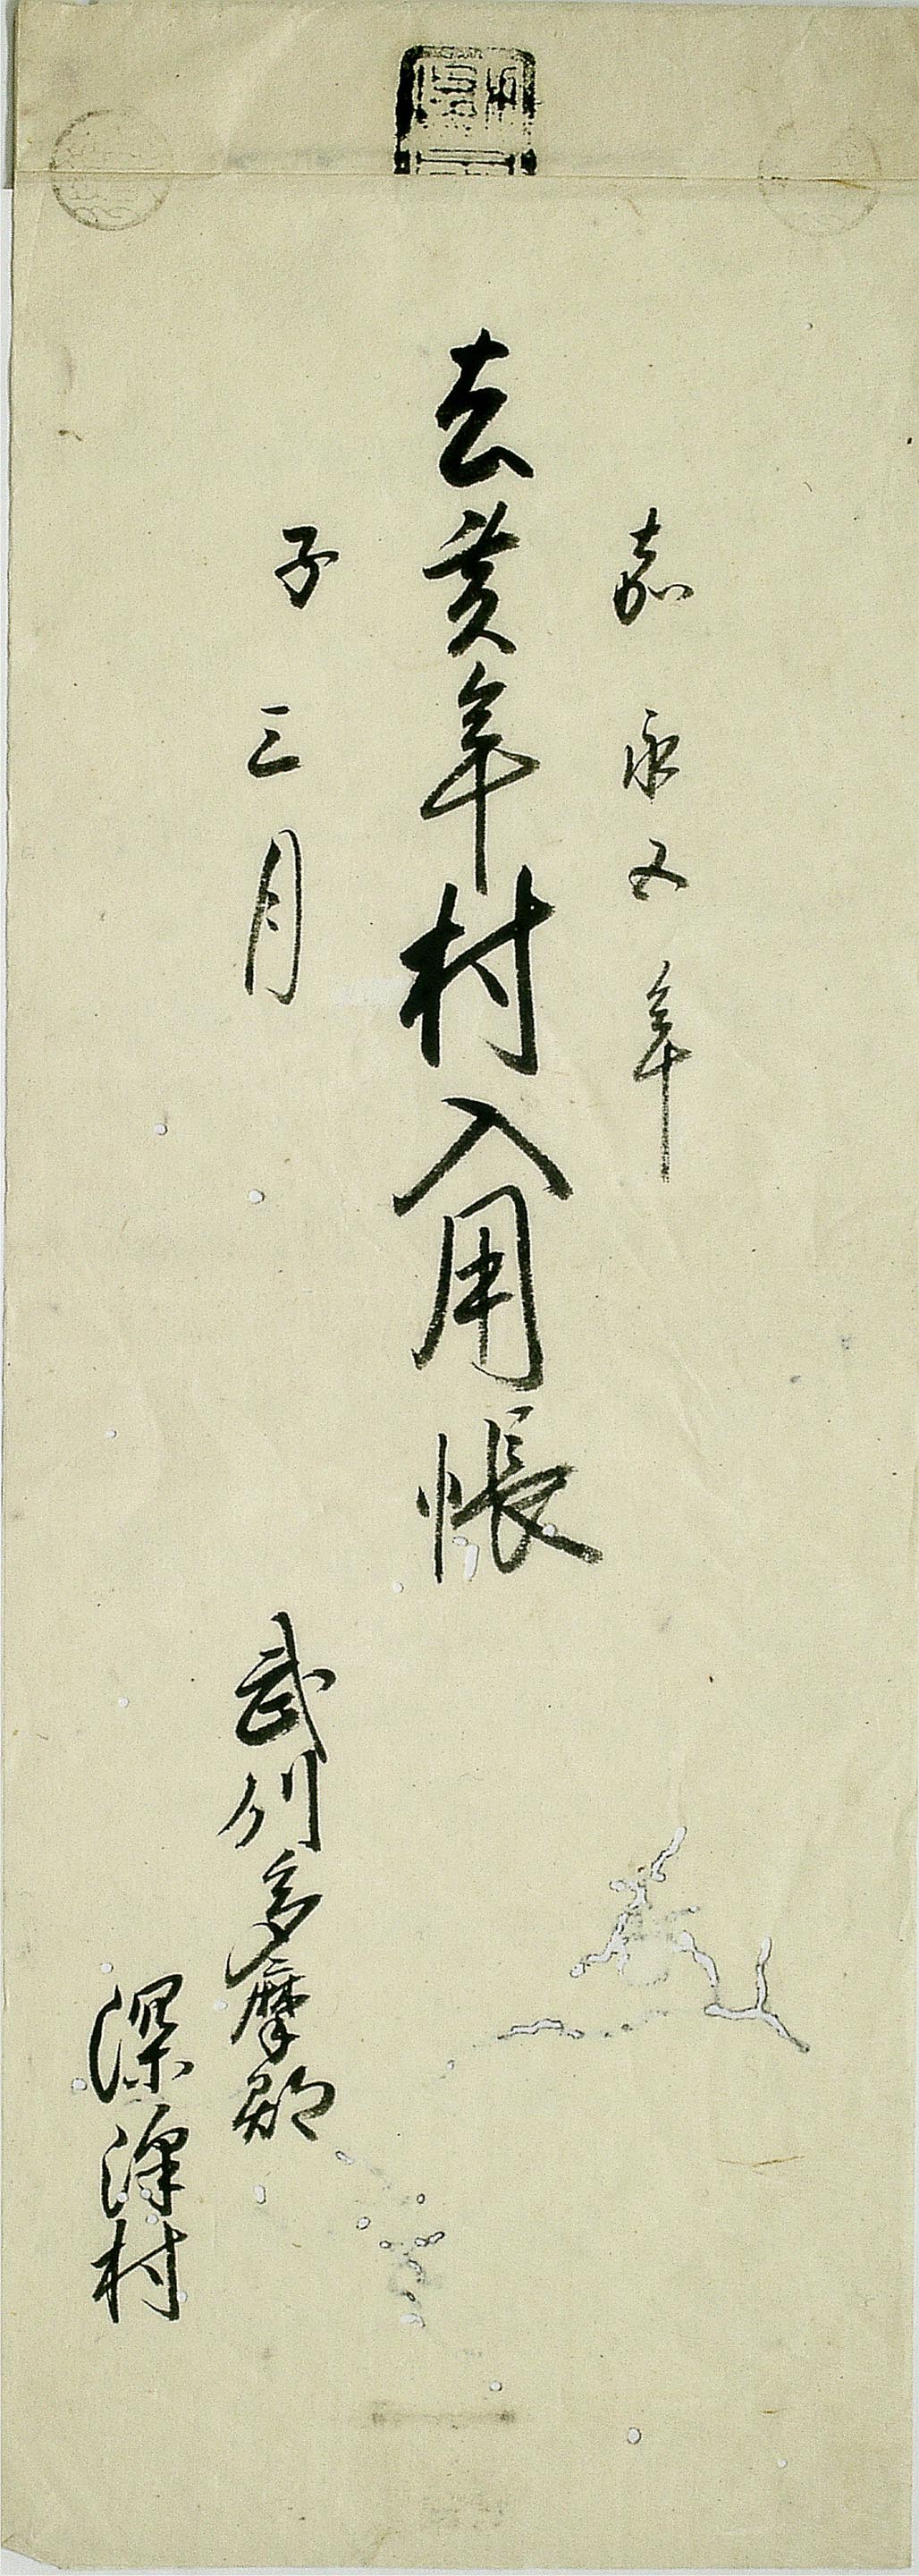 嘉永五年
去亥年村入用帳
子三月
武州多摩郡
深澤村